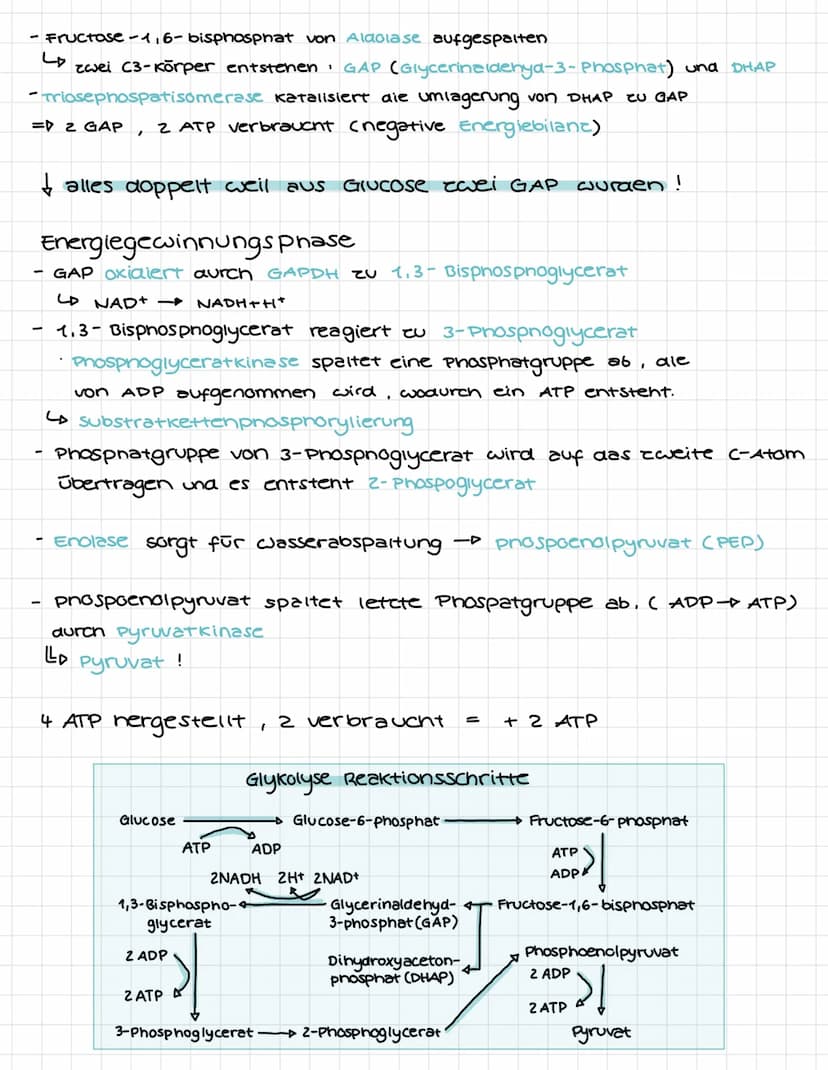 - Fructose-1,6-bisphosphat von Aldolase aufgespalten
↳ zwei C3-Körper entstehen : GAP (Glycerinaldehyd-3-Phosphat) und DHAP
- Triosephospatisomerase Katalisiert die Umlagerung von DHAP zu GAP
=> 2 GAP , 2 ATP verbraucht (negative Energiebilanz)
↓ alles doppelt weil aus Glucose zwei GAP wurden !
Energiegewinnungsphase
- GAP oxidiert durch GAPDH zu 1,3-Bisphosphoglycerat
↳ NAD+ → NADH+H+
- 1,3-Bisphosphoglycerat reagiert zu 3-Phosphoglycerat
· Phosphoglyceratkinase spaltet eine Phosphatgruppe ab, die
von ADP aufgenommen wird, wodurch ein ATP entsteht.
↳ Substratkettenphosphorylierung
- Phosphatgruppe von 3-Phosphoglycerat wird auf das zweite C-Atom
übertragen und es entsteht 2-Phospoglycerat
- Enolase sorgt für Wasserabspaltung → Phospoenolpyruvat (PEP)
- Phospoenolpyruvat spaltet letzte Phospatgruppe ab. ( ADP → ATP)
durch Pyruvatkinase
↳ Pyruvat !
4 ATP hergestellt , 2 verbraucht = + 2 ATP
Glykolyse Reaktionsschritte
Glucose → Glucose-6-phosphat → Fructose-6-phosphat
ATP ADP
ATP
ADP
2NADH 2H+ 2NAD+
1,3-Bisphospho-
glycerat
Glycerinaldehyd-
3-phosphat(GAP)
Fructose-1,6-bisphosphat
Dihydroxyaceton-
phosphat (DHAP)
Phosphoenolpyruvat
2 ADP
2 ATP
2 ADP
2 ATP
3-Phosphoglycerat → 2-Phosphoglycerat
Pyruvat